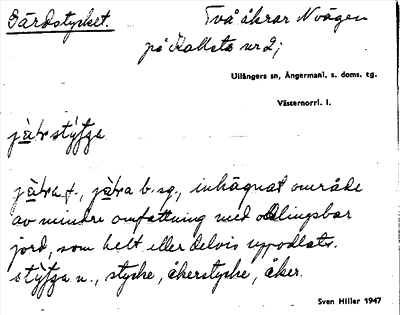 Gärdstycket.
Två åkrar N vägen
på Kallsta nr 2;
Ullångers sn, Ångermanl. s. doms. tg.
Västernorrl. l.
jä̀trstýfʒa
jä̀tra f., jä̀tra b. sg., inhägnat område
av mindre omfattning med odlingsbar
jord, som helt eller delvis uppodlats.
stýfʒa n., stycke, åkerstycke, åker.
Sven Hiller 1947